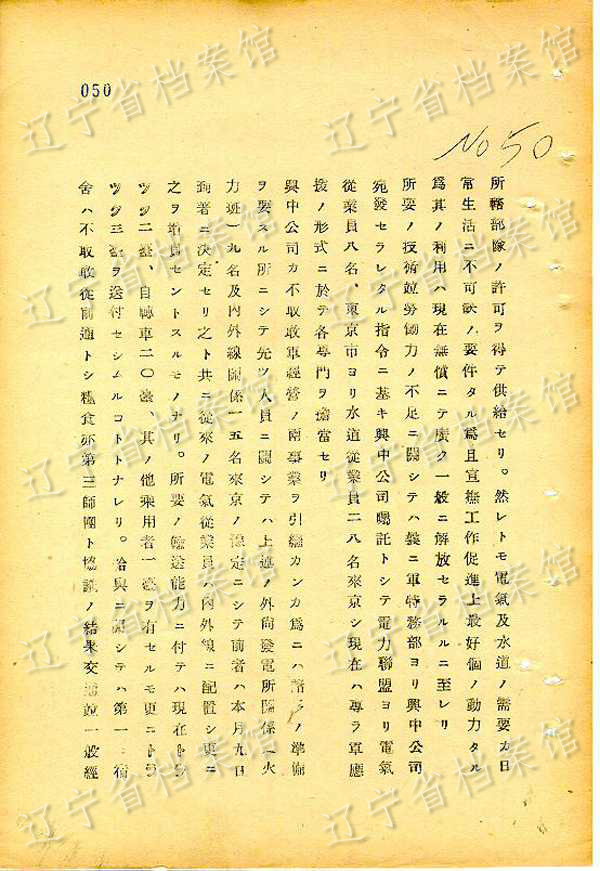 050
No 50
所轄部隊ノ許可ヲ得テ供給セリ。然レトモ電氣及水道ノ需要カ日
常生活ニ不可欠ノ要件タル爲且宣撫工作促進上最好個ノ動力タル
爲其ノ利用ハ現在無償ニテ廣ク一般ニ解放セラルルニ至レリ
所要ノ技術竝勞働力ノ不足ニ關シテハ曩ニ軍特務部ヨリ興中公司
宛發セラレタル指令ニ基キ興中公司囑託トシテ電力聯盟ヨリ電氣
從業員八名、東京市ヨリ水道從業員二八名來京シ現在ハ專ラ軍應
援ノ形式ニ於テ各專門ヲ擔當セリ
興中公司カ不取敢軍經營ノ兩事業ヲ引繼カンカ爲ニハ諸多ノ準備
ヲ要スル所ニシテ先ツ人員ニ關シテハ上述ノ外尙發電所關係(火
力班一九名及內外線關係一五名來京ノ豫定ニシテ前者ハ本月九日
到著ニ決定セリ之ト共ニ從來ノ電氣從業員ハ內外線ニ配置シ更ニ
之ヲ增員セントスルモノナリ。所要ノ輸送能力ニ付テハ現在トラ
ツク二臺、自轉車二〇臺、其ノ他乘用者一臺ヲ有セルモ更ニトラ
ツク三臺ヲ送付セシムルコトトナレリ。給與ニ關シテハ第一、宿
舍ハ不取敢從前通トシ糧食亦第三師團ト協議ノ結果交通竝一般經
辽宁省档案馆
辽宁省档案馆
辽宁省档案馆
辽宁省档案馆
辽宁省档案馆
辽宁省档案馆
辽宁省档案馆
辽宁省档案馆
辽宁省档案馆
辽宁省档案馆